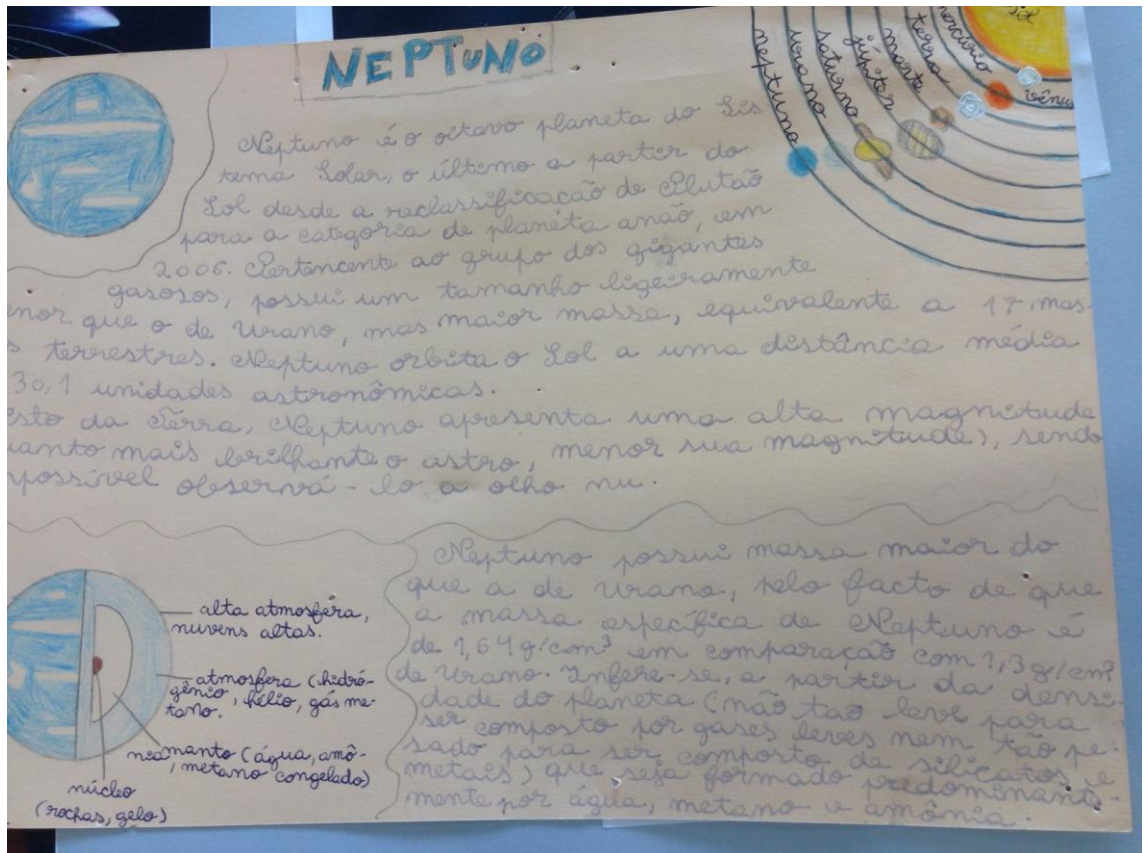 NEPTUNO
Sol
mercúrio
vênus
terra
marte
júpiter
saturno
urano
neptuno
Neptuno é o oitavo planeta do Sis
tema Solar, o último a partir do
Sol desde a reclassificação de Plutão
para a categoria de planéta anão, em
2006. Pertencente ao grupo dos gigantes
gasosos, possui um tamanho ligeiramente
enor que o de Urano, mas maior massa, equivalente a 17 mas-
s terrestres. Neptuno orbita o Sol a uma distância média
30,1 unidades astronômicas.
sto da Terra, Neptuno apresenta uma alta magnitude
uanto mais brilhante o astro, menor sua magnitude), sendo
mpossível observá-lo a olho nu.
alta atmosfera,
nuvens altas.
atmosfera (hidró-
gênio, hélio, gás me-
tano.
manto (água, amô-
nia, metano congelado)
núcleo
(rochas, gelo)
Neptuno possui massa maior do
que a de Urano, pelo facto de que
a massa específica de Neptuno é
de 1,64g/cm³ em comparação com 1,3g/cm³
de Urano. Infere-se, a partir da densi-
dade do planeta (não tao leve para
ser composto por gases leves nem tão pe-
sado para ser composto de silicatos e
metais) que seja formado predominante-
mente por água, metano e amônia.